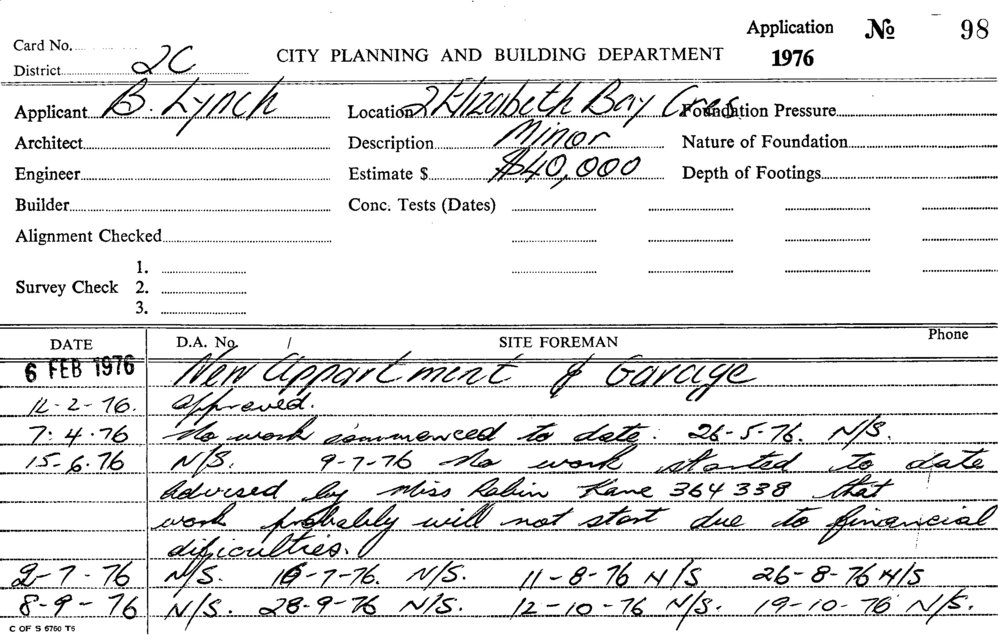 Application № 98
Card No.
CITY PLANNING AND BUILDING DEPARTMENT 1976
District 2C
Applicant B. Lynch Location 2 Elizabeth Bay Cres Foundation Pressure
Architect Description Minor Nature of Foundation
Engineer Estimate $ $40,000 Depth of Footings
Builder Conc. Tests (Dates)
Alignment Checked
1.
Survey Check 2.
3.
DATE D.A. No. / SITE FOREMAN Phone
6 FEB 1976 New Appartment & Garage
12-2-76. Approved.
7.4.76 No work commenced to date. 26-5-76. N/S.
15.6.76 N/S. 9-7-76 No work started to date
advised by Miss Robin Kane 364338 that
work probably will not start due to financial
dificulties.
2-7-76 N/S. 16-7-76. N/S. 11-8-76 N/S 26-8-76 N/S
8-9-76 N/S. 28-9-76 N/S. 12-10-76 N/S. 19-10-76 N/S.
C OF S 5760 T5